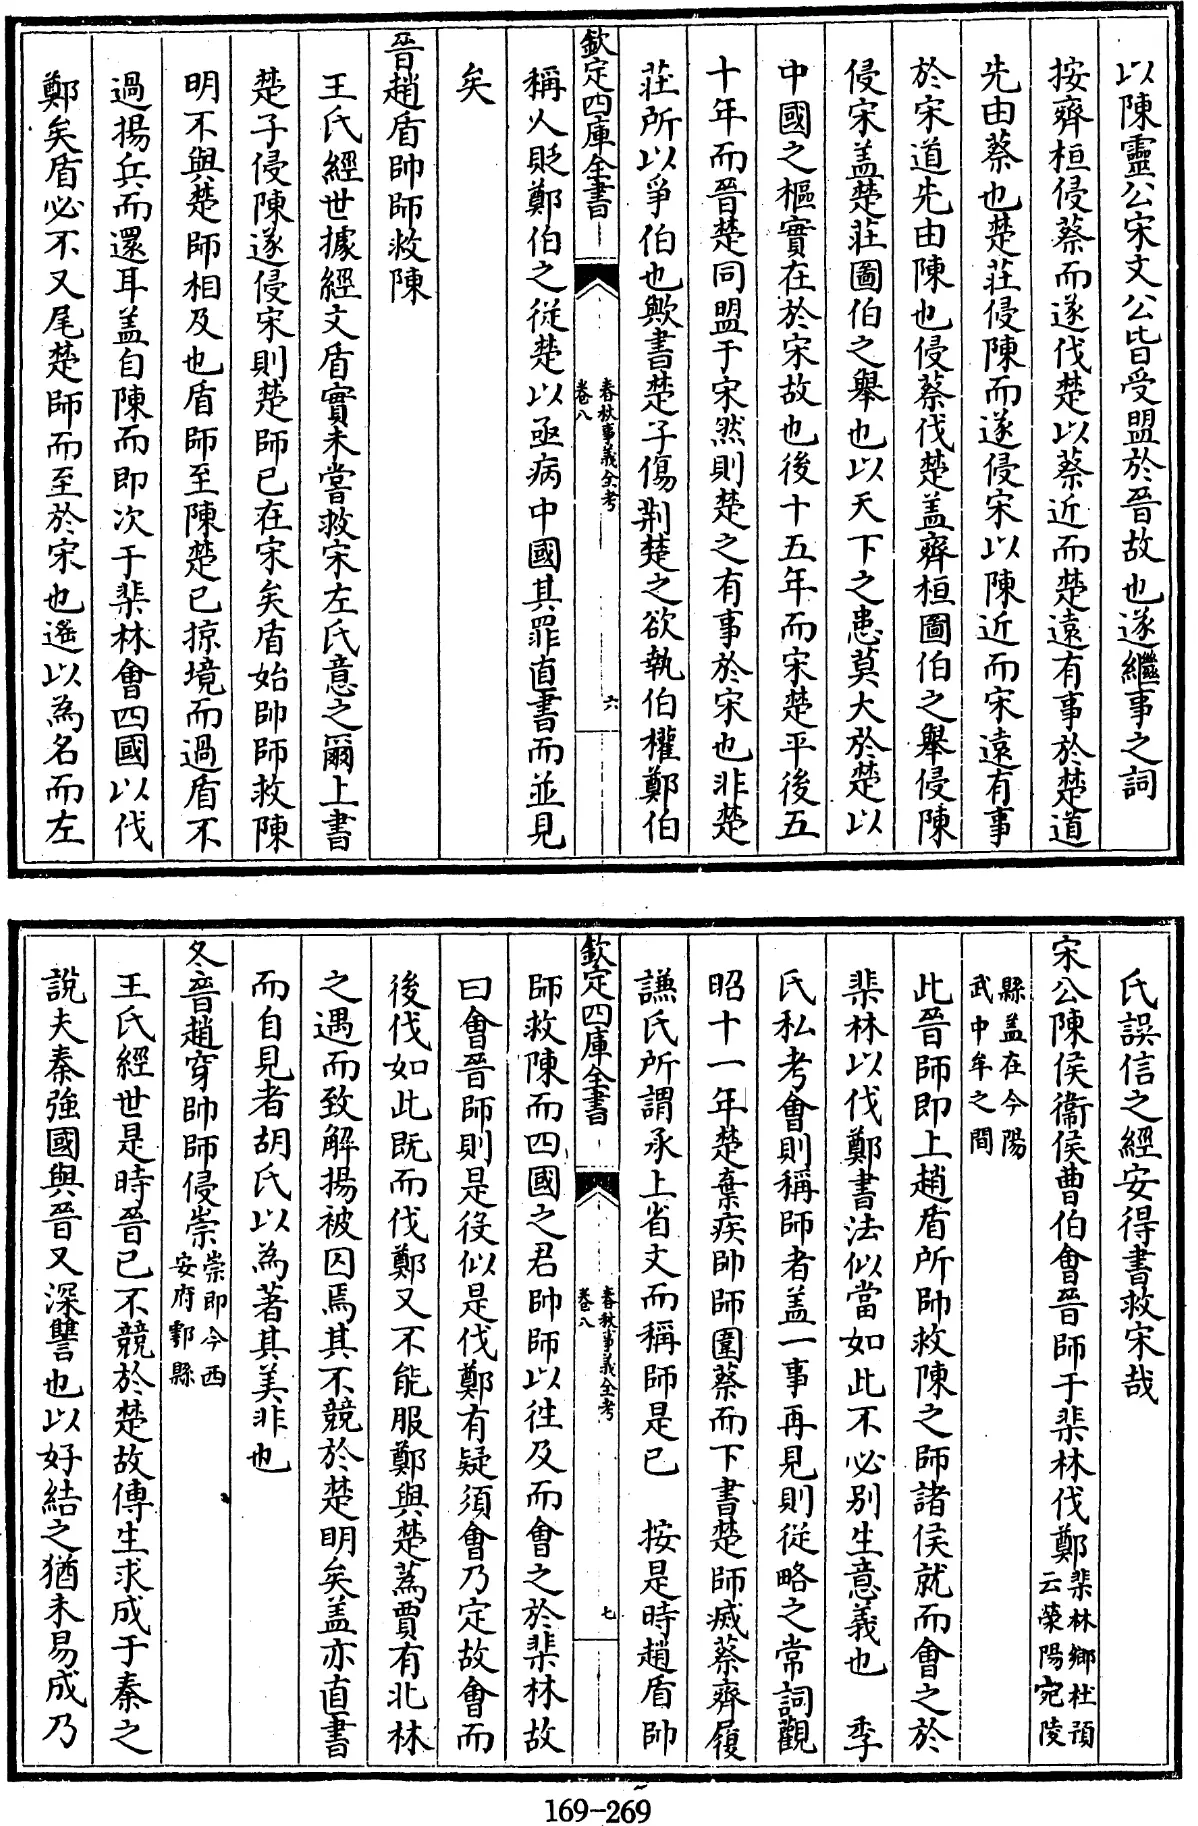 以陳靈公宋文公皆受盟於晉故也遂繼事之詞
按齊桓侵蔡而遂伐楚以蔡近而楚遠有事於楚道
先由蔡也楚莊侵陳而遂侵宋以陳近而宋遠有事
於宋道先由陳也侵蔡伐楚盖齊桓圖伯之舉侵陳
侵宋盖楚莊圖伯之舉也以天下之患莫大於楚以
中國之樞實在於宋故也後十五年而宋楚平後五
十年而晉楚同盟于宋然則楚之有事於宋也非楚
莊所以爭伯也歟書楚子傷荆楚之欲執伯權鄭伯
欽定四庫全書
春秋事義全考
卷八
六
稱人貶鄭伯之從楚以亟病中國其罪直書而並見
矣
晉趙盾帥師救陳
王氏經世據經文盾實未嘗救宋左氏意之爾上書
楚子侵陳遂侵宋則楚師已在宋矣盾始帥師救陳
明不與楚師相及也盾師至陳楚已掠境而過盾不
過揚兵而還耳盖自陳而即次于棐林會四國以伐
鄭矣盾必不又尾楚師而至於宋也遙以為名而左
氏誤信之經安得書救宋哉
宋公陳侯衞侯曹伯會晉師于棐林伐鄭棐林鄉杜預
云滎陽宛陵
縣盖在今陽
武中牟之間
此晉師即上趙盾所帥救陳之師諸侯就而會之於
棐林以伐鄭書法似當如此不必別生意義也　季
氏私考會則稱師者盖一事再見則從略之常詞觀
昭十一年楚棄疾帥師圍蔡而下書楚師滅蔡齊履
謙氏所謂承上省文而稱師是已　按是時趙盾帥
欽定四庫全書
春秋事義全考
卷八
七
師救陳而四國之君帥師以往及而會之於棐林故
曰會晉師則是役似是伐鄭有疑須會乃定故會而
後伐如此既而伐鄭又不能服鄭與楚蒍賈有北林
之遇而致解揚被囚焉其不競於楚明矣盖亦直書
而自見者胡氏以為著其美非也
冬晉趙穿帥師侵崇崇即今西
安府鄠縣
王氏經世是時晉已不競於楚故傳生求成于秦之
說夫秦強國與晉又深讐也以好結之猶未易成乃
169-269